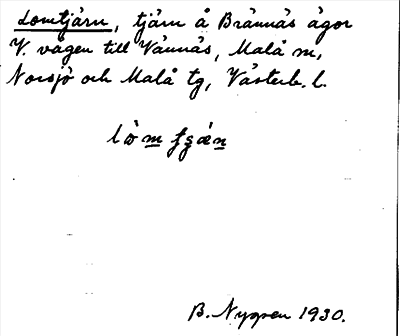 Lomtjärn, tjärn å Brännäs ägor
V. vägen till Vännäs, Malå sn,
Norsjö och Malå tg, Västerb. l.
B. Nygren 1930.